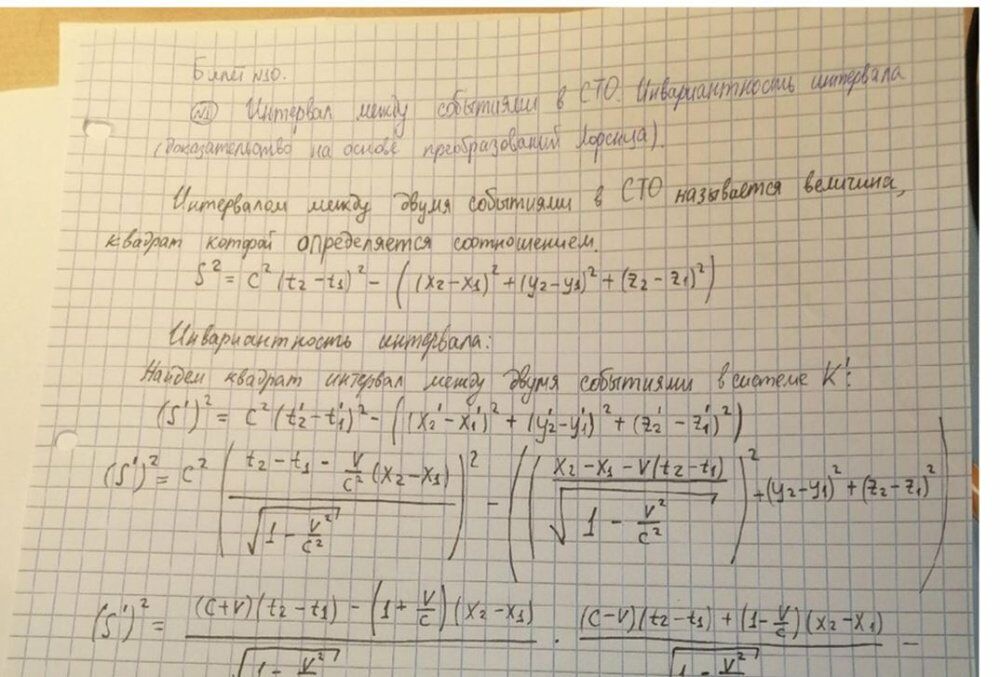 Билет №10.
№1 Интервал между событиями в СТО. Инвариантность интервала
(доказательство на основе преобразований Лоренца).
Интервалом между двумя событиями в СТО называется величина,
квадрат которой определяется соотношением.
S² = c²(t₂-t₁)² - ((x₂-x₁)² + (y₂-y₁)² + (z₂-z₁)²)
Инвариантность интервала:
Найдем квадрат интервал между двумя событиями в системе K':
(S')² = c²(t₂'-t₁')² - ((x₂'-x₁')² + (y₂'-y₁')² + (z₂'-z₁')²)
(S')² = c² ((t₂-t₁-v/c²(x₂-x₁))/√(1-v²/c²))² - (((x₂-x₁-v(t₂-t₁))/√(1-v²/c²))² + (y₂-y₁)² + (z₂-z₁)²)
(S')² = ((c+v)(t₂-t₁) - (1+v/c)(x₂-x₁))/√(1-v²) · ((c-v)(t₂-t₁) + (1-v/c)(x₂-x₁))/√(1-v²) -